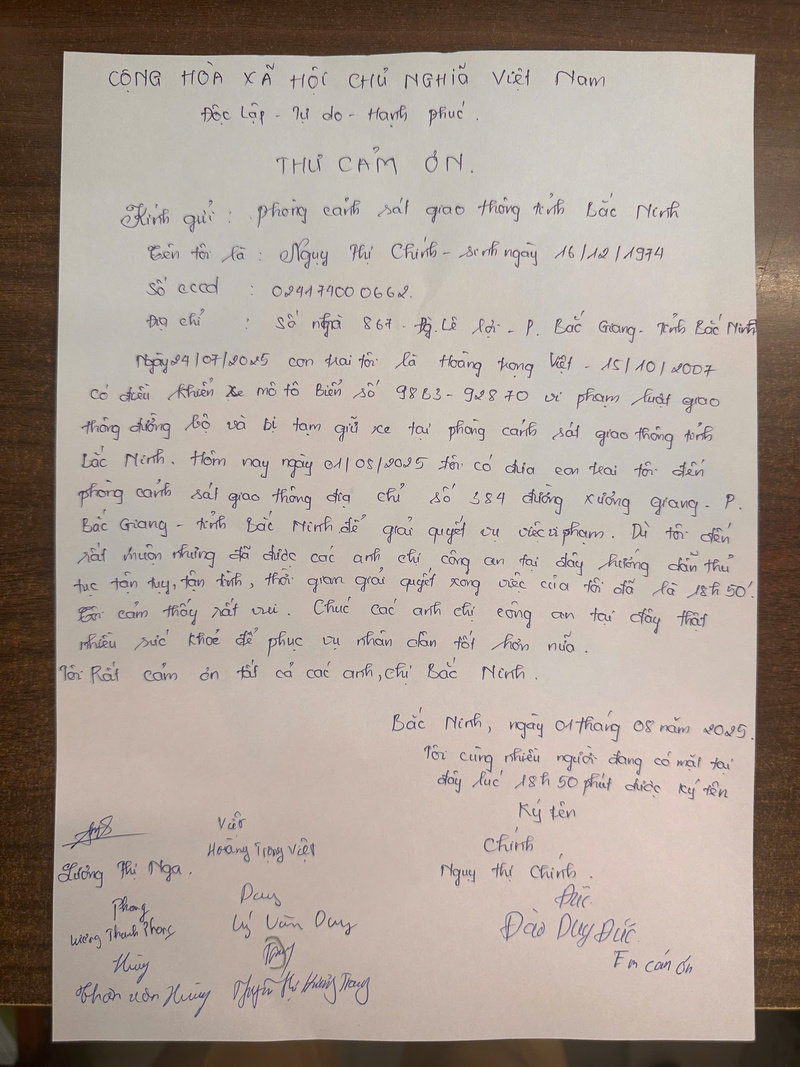 CỘNG HÒA XÃ HỘI CHỦ NGHĨA Việt Nam
Độc Lập - Tự do - Hạnh phúc.
THƯ CẢM ƠN.
Kính gửi : phòng cảnh sát giao thông tỉnh Bắc Ninh
Tên tôi là : Nguy Thị Chính - sinh ngày 16/12/1974
Số cccd : 024174000662.
Địa chỉ : Số nhà 867 - Đg. Lê Lợi - P. Bắc Giang - tỉnh Bắc Ninh
Ngày 24/07/2025 con trai tôi là Hoàng trọng Việt - 15/10/2007
có điều khiển xe mô tô Biển số 98B3-92870 vi phạm luật giao
thông đường bộ và bị tạm giữ xe tại phòng cảnh sát giao thông tỉnh
Bắc Ninh. Hôm nay ngày 01/08/2025 tôi có đưa con trai tôi đến
phòng cảnh sát giao thông địa chỉ số 384 đường xương giang - P.
Bắc Giang - tỉnh Bắc Ninh để giải quyết vụ việc vi phạm. Dù tôi đến
rất muộn nhưng đã được các anh chị công an tại đây hướng dẫn thủ
tục tận tụy, tận tình, thời gian giải quyết xong việc của tôi đã là 18h50'.
Tôi cảm thấy rất vui. Chúc các anh chị công an tại đây thật
nhiều sức khoẻ để phục vụ nhân dân tốt hơn nữa.
Tôi Rất cảm ơn tất cả các anh, chị Bắc Ninh.
Bắc Ninh, ngày 01 tháng 08 năm 2025.
Tôi cùng nhiều người đang có mặt tại
đây lúc 18h 50 phút được ký tên
Ký tên
Chính
Nguy thị Chính.
Đức
Đào Duy Đức
Em cảm ơn
Lương Thị Nga.
Việt
Hoàng Trọng Việt
Phong
Lương Thanh Phong
Duy
Lý Văn Duy
Hùng
Thân văn Hùng
Trang
Nguyễn Thị Hương Trang